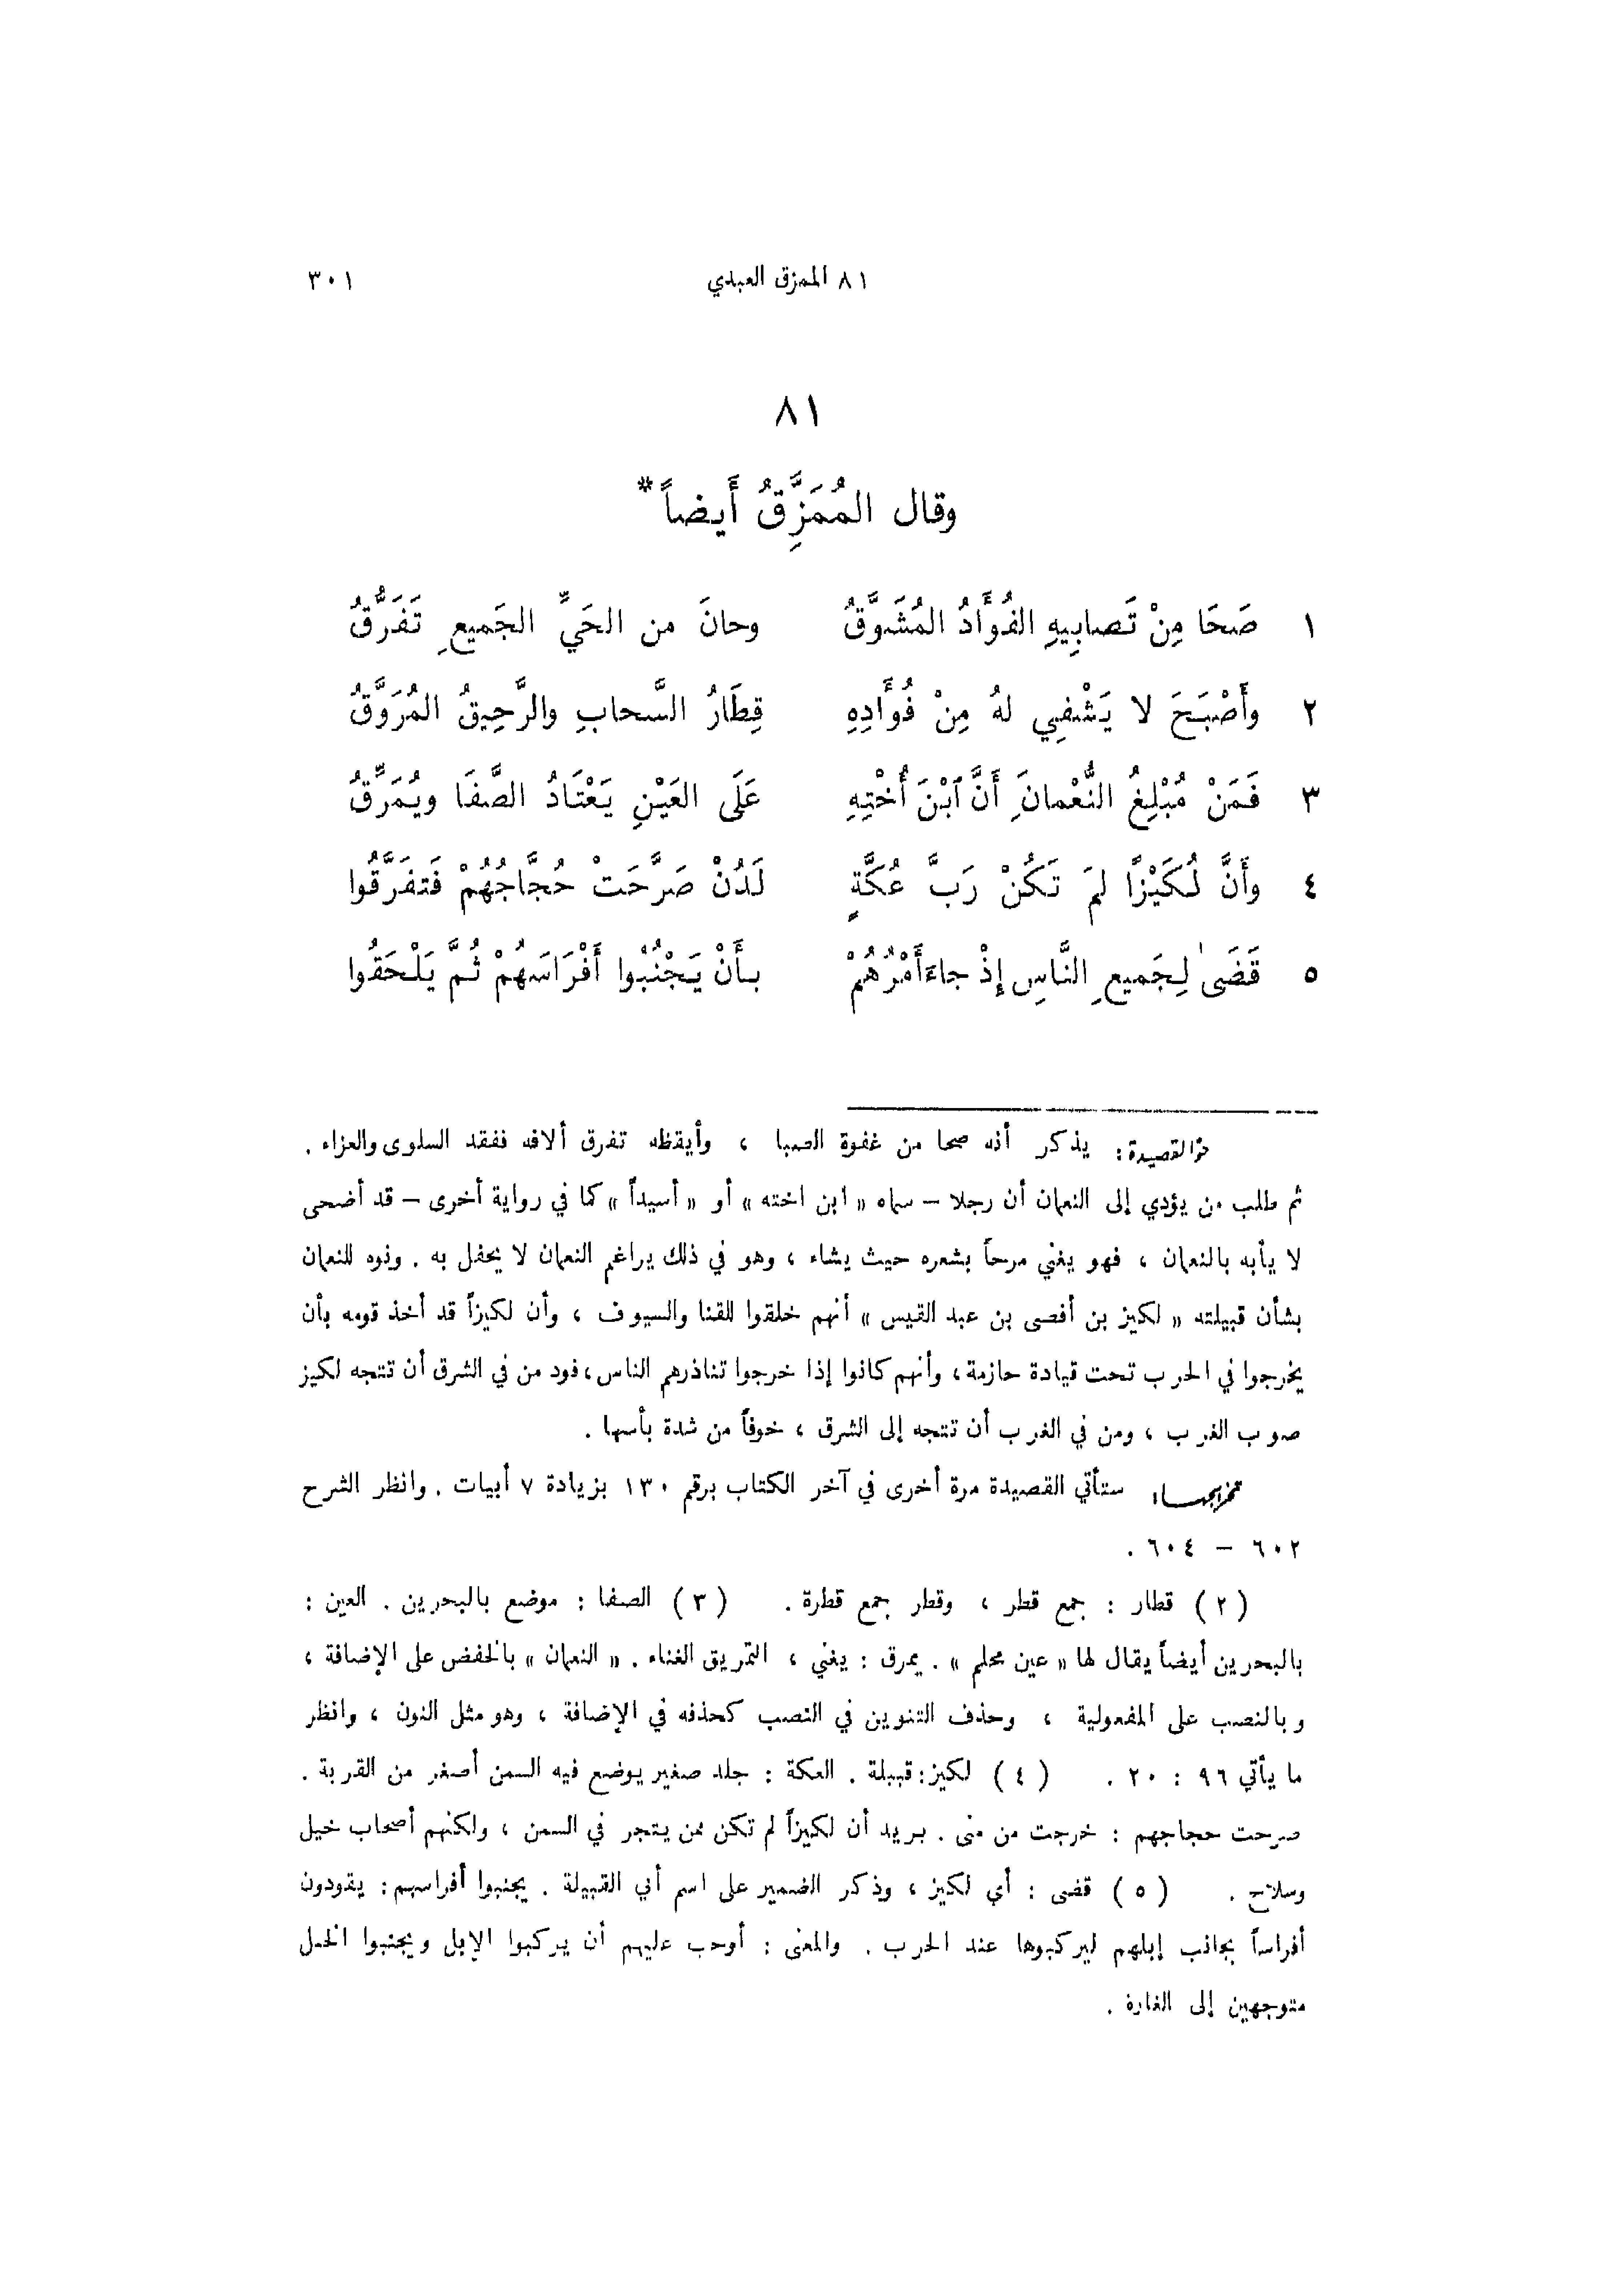 ٨١ الممزق العبدي ٣٠١
٨١
وقال المُمَزَّقُ أَيضاً*
١ صَحَا مِنْ تَصابِيهِ الفُؤَادُ المُشَوَّقُ وحانَ من الحَيِّ الجَميعِ تَفَرُّقُ
٢ وأَصْبَحَ لا يَشْفِي لهُ مِنْ فُؤَادِهِ قِطَارُ السَّحابِ والرَّحِيقُ المُرَوَّقُ
٣ فَمَنْ مُبْلِغُ النُّعْمانَِ أَنَّ ٱبْنَ أُخْتِهِ عَلَى العَيْنِ يَعْتَادُ الصَّفَا ويُمَرِّقُ
٤ وأَنَّ لُكَيْزًا لمَ تَكُنْ رَبَّ عُكَّةٍ لَدُنْ صَرَّحَتْ حُجَّاجُهُمْ فَتفَرَّقُوا
٥ قَضَىٰ لِجَميعِ النَّاسِ إِذْ جاءَ أَمْرُهُمْ بأَنْ يَجْنُبُوا أَفْرَاسَهُمْ ثُمَّ يَلْحَقُوا
جو القصيدة: يذكر أنه صحا من غفوة الصبا ، وأيقظه تفرق ألافه ففقد السلوى والعزاء .
ثم طلب من يؤدي إلى النعمان أن رجلا – سماه « ابن اخته » أو « أسيداً » كما في رواية أخرى – قد أضحى
لا يأبه بالنعمان ، فهو يغني مرحاً بشعره حيث يشاء ، وهو في ذلك يراغم النعمان لا يحفل به . ونوه للنعمان
بشأن قبيلته « لكيز بن أفصى بن عبد القيس » أنهم خلقوا للقنا والسيوف ، وأن لكيزاً قد أخذ قومه بأن
يخرجوا في الحرب تحت قيادة حازمة ، وأنهم كانوا إذا خرجوا تناذرهم الناس ، فود من في الشرق أن تتجه لكيز
صوب الغرب ، ومن في الغرب أن تتجه إلى الشرق ، خوفاً من شدة بأسها .
تخريجها: ستأتي القصيدة مرة أخرى في آخر الكتاب برقم ١٣٠ بزيادة ٧ أبيات . وانظر الشرح
٦٠٢ – ٦٠٤ .
( ٢ ) قطار : جمع قطر ، وقطر جمع قطرة . ( ٣ ) الصفا : موضع بالبحرين . العين :
بالبحرين أيضاً يقال لها « عين محلم » . يمرق : يغني ، التمريق الغناء . « النعمان » بالخفض على الإضافة ،
وبالنصب على المفعولية ، وحذف التنوين في النصب كحذفه في الإضافة ، وهو مثل النون ، وانظر
ما يأتي ٩٦ : ٢٠ . ( ٤ ) لكيز : قبيلة . العكة : جلد صغير يوضع فيه السمن أصغر من القربة .
صرحت حجاجهم : خرجت من منى . يريد أن لكيزاً لم تكن ممن يتجر في السمن ، ولكنهم أصحاب خيل
وسلاح . ( ٥ ) قضى : أي لكيز ، وذكر الضمير على اسم أبي القبيلة . يجنبوا أفراسهم : يقودون
أفراساً بجانب إبلهم ليركبوها عند الحرب . والمعنى : أوجب عليهم أن يركبوا الإبل ويجنبوا الخيل
متوجهين إلى الغارة .